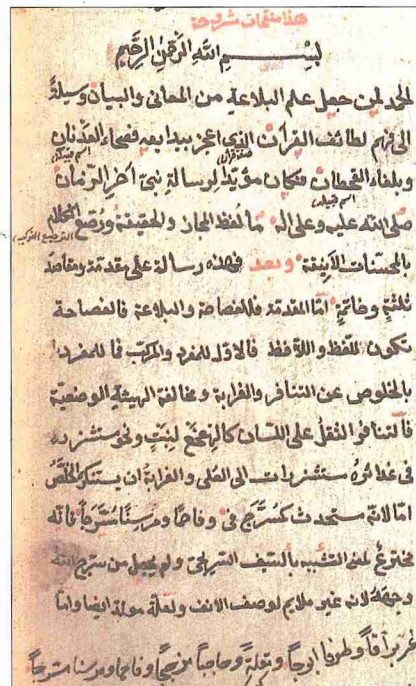 هذا متممات مشروحة
بسم الله الرحمن الرحيم
الحمد لمن جعل علم البلاغة من المعانى والبيان وسيلة
الى فهم لطائف القرآن الذى اعجز ببدايعه فصحاء العدنان
صفة قرآن
اسم قبيله
وبلغاء القحطان فكان مؤيّداً لرسالة نبىّ اخر الزمان
اسم قبيله
صلى الله عليه وعلى اله ما لفظ المجاز والحقيقة ورُصّع الكلام
الترصيع التركيب
بالمحسنات الانيقة وبعد فهذه رسالة على مقدمة ومقاصد
ثلثةٍ وخاتمةٍ امّا المقدمة فللفصاحة والبلاغة فالفصاحة
تكون للّفظ واللافظ فالاول للمفرد والمركب فا للمفرد
بالخلوص عن التنافر والغرابة ومخالفة الهيئة الوضعيّة
فالتنافر الثقل على اللسان كالهعخع لنبتٍ ونحو مستشزر
فى غدائره مستشزرات الى العلى والغرابة ان يستنكر
امّا لانه مستحدث كمسرّج فى وفاحماً ومرسناً مسّرجاً فانّه
مخترعٌ لمعنى التشبيه بالسيف السريجى ولم يجعل من سرّج الله
وجهه لانه غير ملايم لوصف الانف ولعلّه مولد ايضا وامّا
وطرفا ابرجاً ومقلةً وحاجباً مزججاً وفاحما ومرسنا مسرجاً